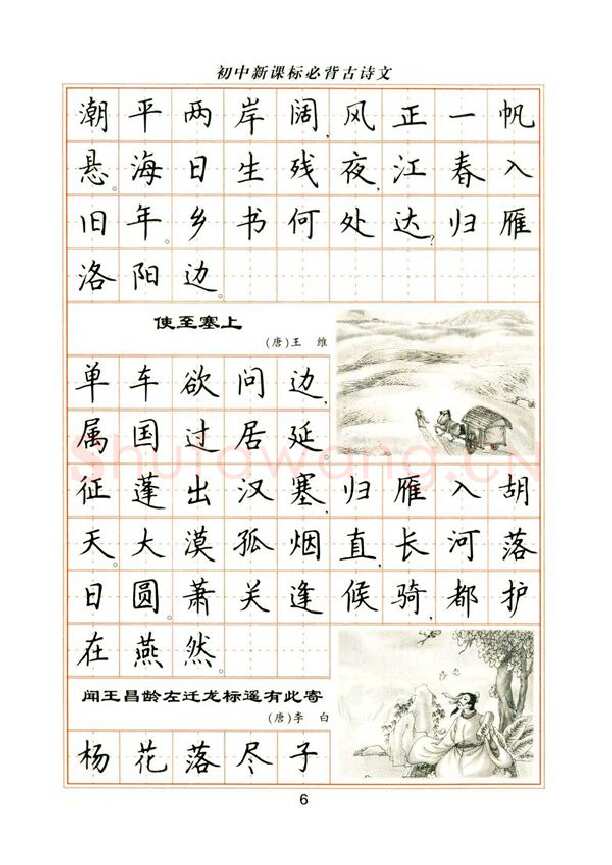 初中新课标必背古诗文
潮平两岸阔,风正一帆
悬。海日生残夜,江春入
旧年。乡书何处达?归雁
洛阳边。
使至塞上
(唐)王 维
单车欲问边,
属国过居延。
征蓬出汉塞,归雁入胡
天。大漠孤烟直,长河落
日圆。萧关逢候骑,都护
在燕然。
闻王昌龄左迁龙标遥有此寄
(唐)李 白
杨花落尽子
6
Shufawang.CN